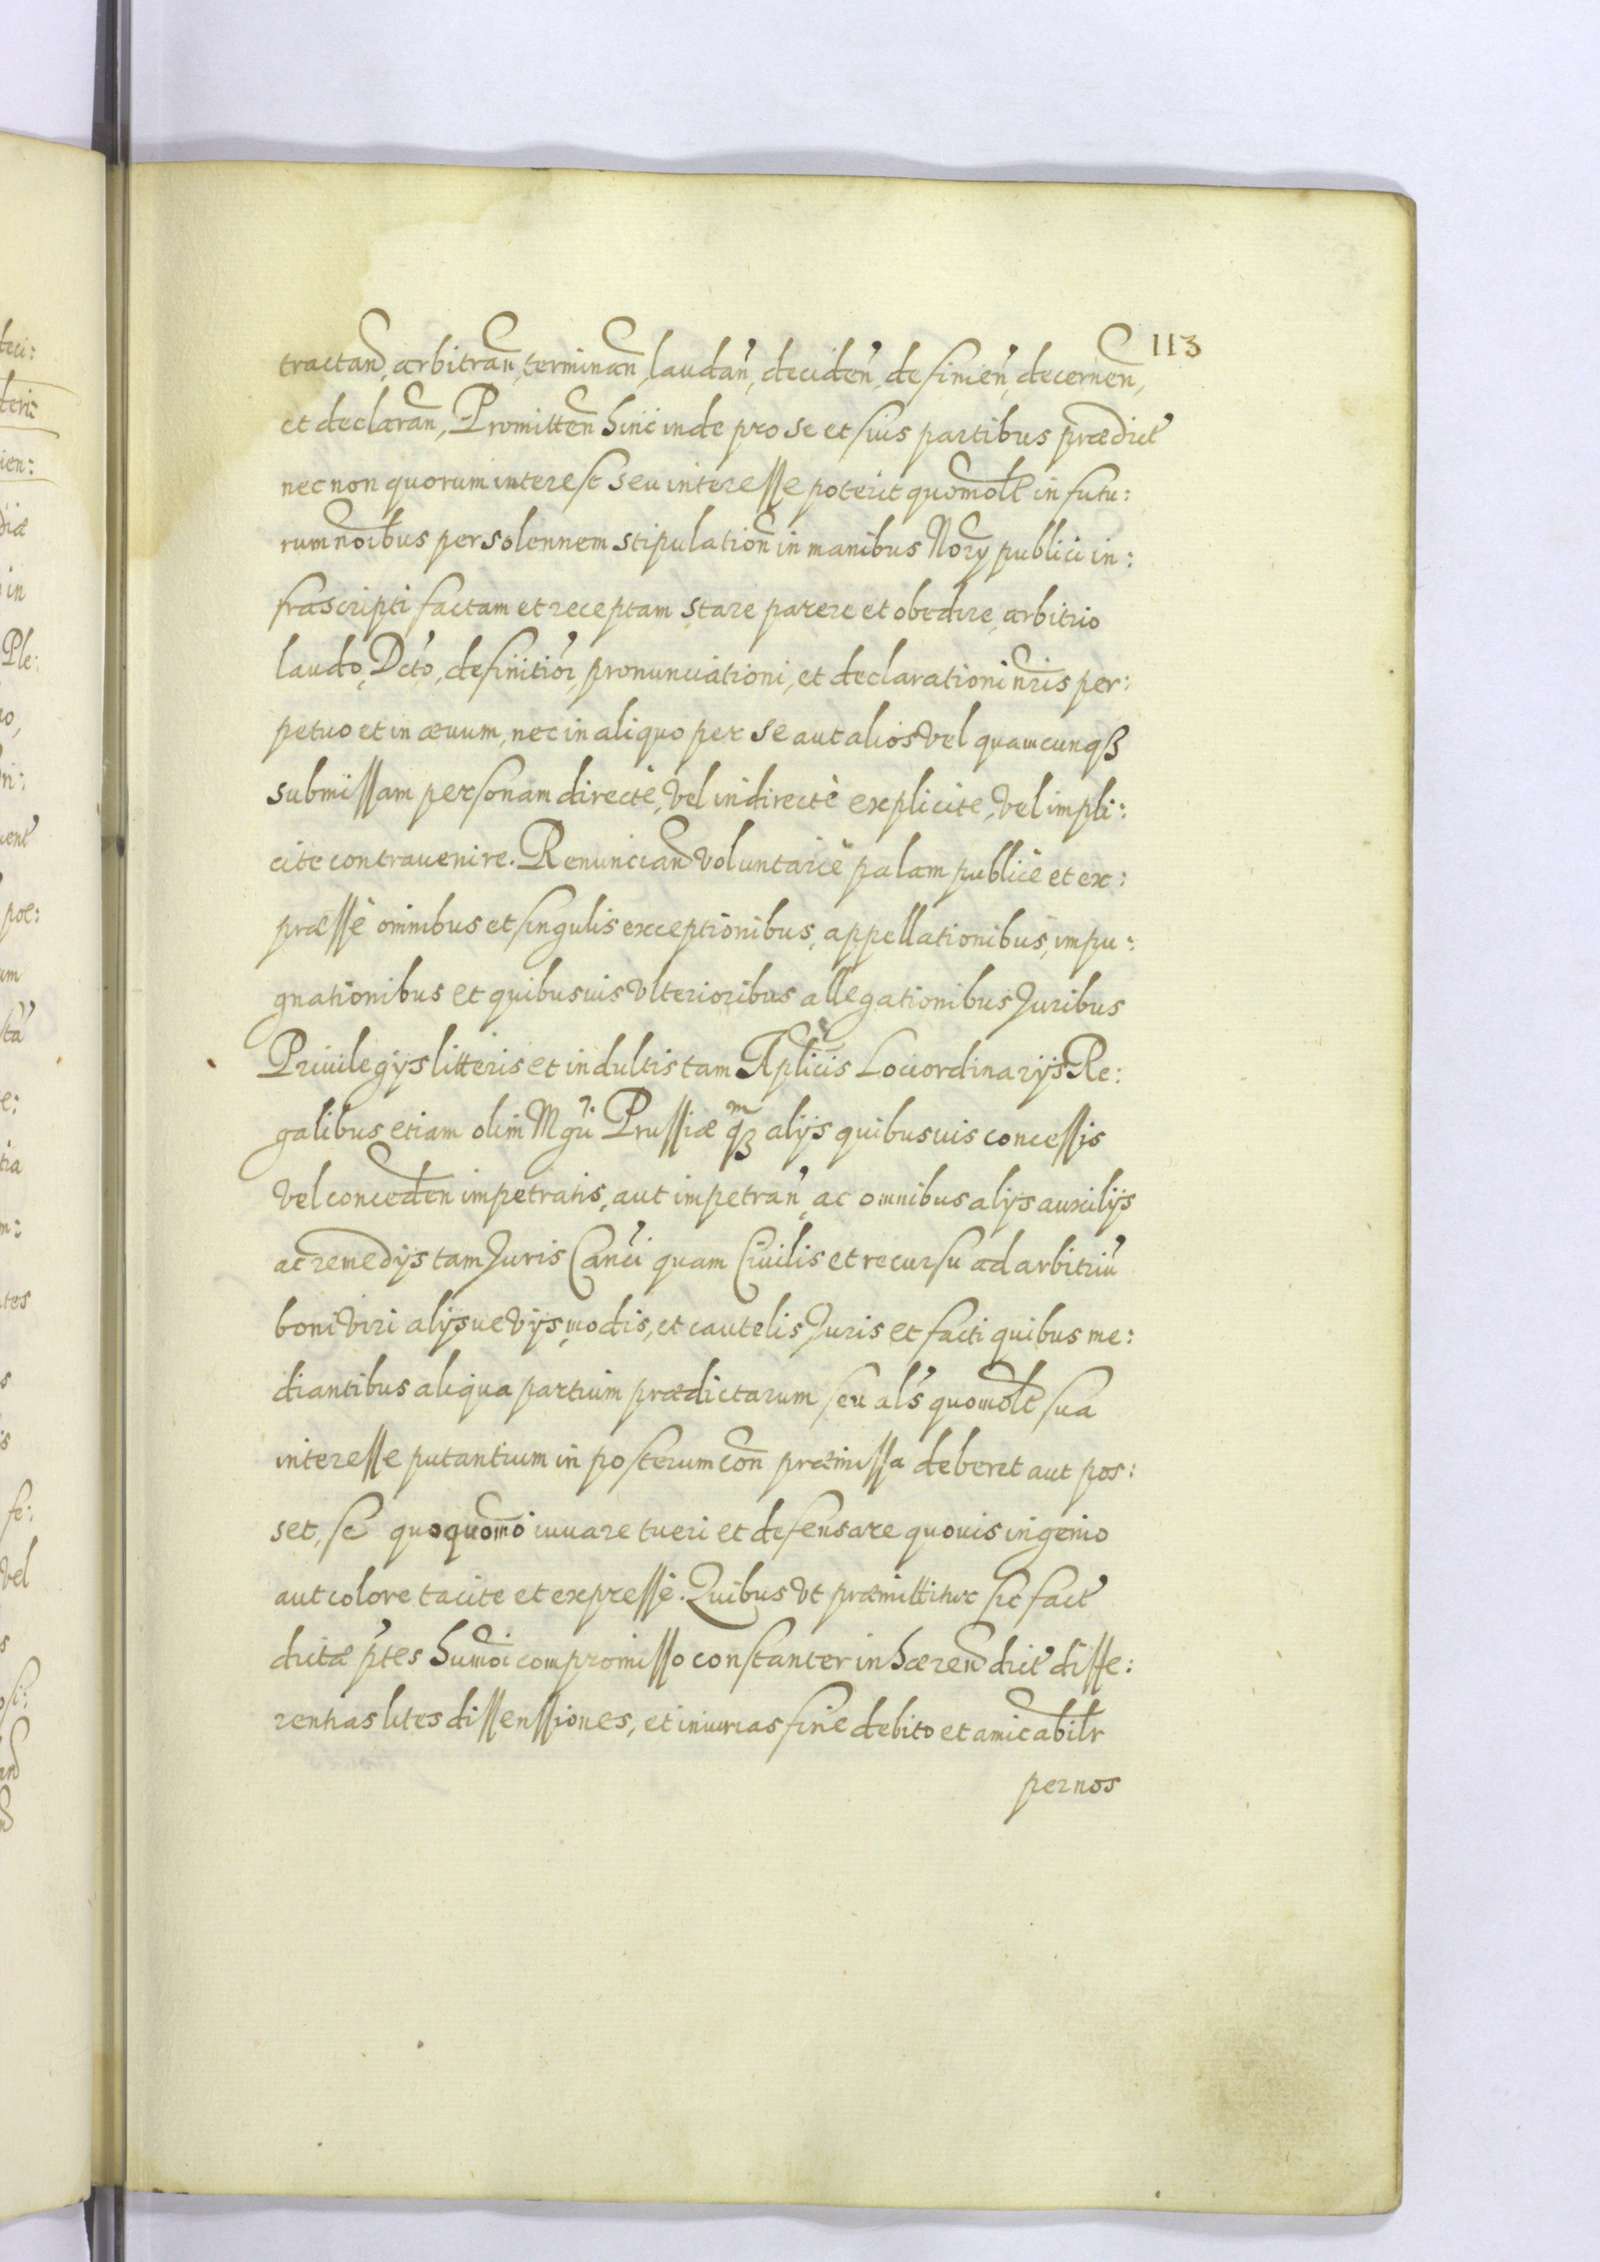 113
tractand, arbitran, terminan, laudan, deciden, definien, decernen,
et declaran, Promitten hinc inde pro se et suis partibus prædict
nec non quorum interest seu interesse poterit quomolt in futu:
rum noibus per solennem stipulation in manibus Nory publici in:
frascripti factam et receptam stare parere et obedire, arbitrio
laudo, Dcto, definitioi, pronunciationi, et declarationi nris per:
petuo et in æuum, nec in aliquo per se aut alios vel quamcunqß
submissam personam directè, vel indirectè explicite, vel impli:
cite contrauenire. Renunciand voluntariè palam publicè et ex:
præssè omnibus et singulis exceptionibus, appellationibus, impu:
gnationibus et quibusuis vlterioribus allegationibus Juribus
Priuilegijs litteris et indultis tam Aplicis Loci ordinarijs Re:
galibus etiam olim Mgri Prussiæ qß alijs quibusuis concessis
vel conceden impetratis, aut impetran, ac omnibus alijs auxilijs
ac remedijs tam Juris Canci quam Ciuilis et recursu ad arbitriu
boni viri alijsue vijs, modis, et cautelis Juris et facti quibus me:
diantibus aliqua partium prædictarum seu als quomolt sua
interesse putantium in posterum con præmissa deberet aut pos:
set, se quoquomo iuuare tueri et defensare quouis ingenio
aut colore tacite et expressè. Quibus vt præmittitur sic fact
dictæ ptes humoi compromisso constanter inhærend dict diffe:
rentias lites dissenssiones, et iniurias fine debito et amicabilr
per nos